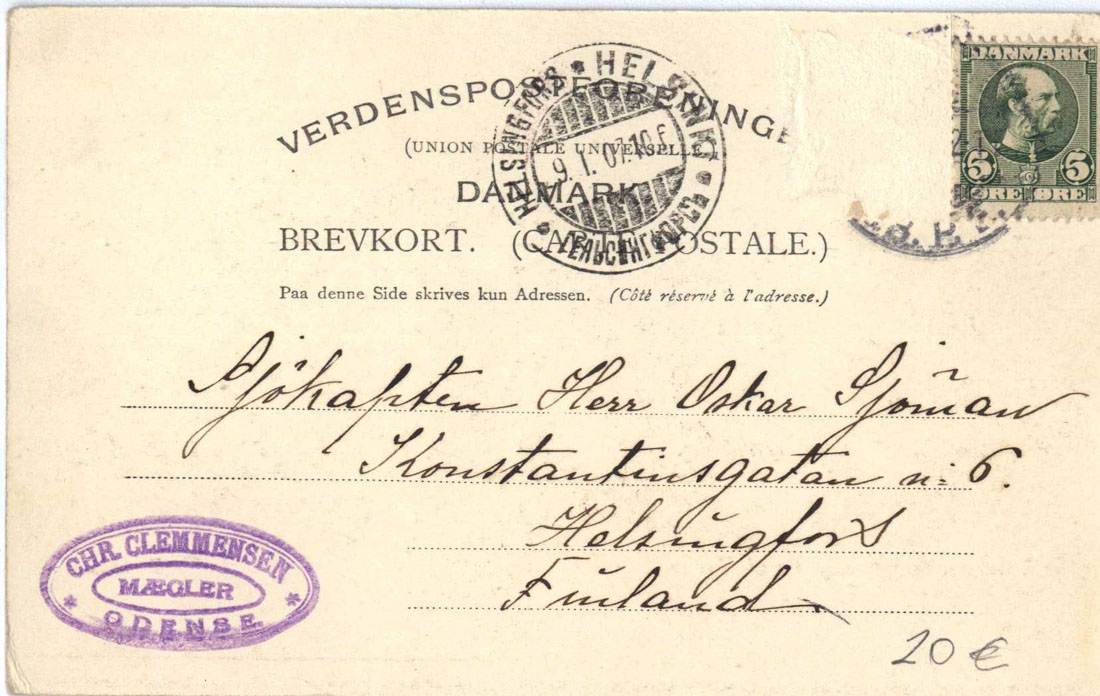 VERDENSPOSTFORENINGE
(UNION POSTALE UNIVERSELLE.)
DANMARK.
BREVKORT. (CARTE POSTALE.)
Paa denne Side skrives kun Adressen. (Côté réservé à l'adresse.)
HELSINKI
HELSINGFORS
9.I.07.10 F
ГЕЛЬСИНГФОРСЪ
DANMARK
5 5
ØRE ØRE
Sjökapten Herr Oskar Sjöman
Konstantinsgatan n: 6.
Helsingfors
Finland
CHR. CLEMMENSEN
MÆGLER
* ODENSE *
20 €